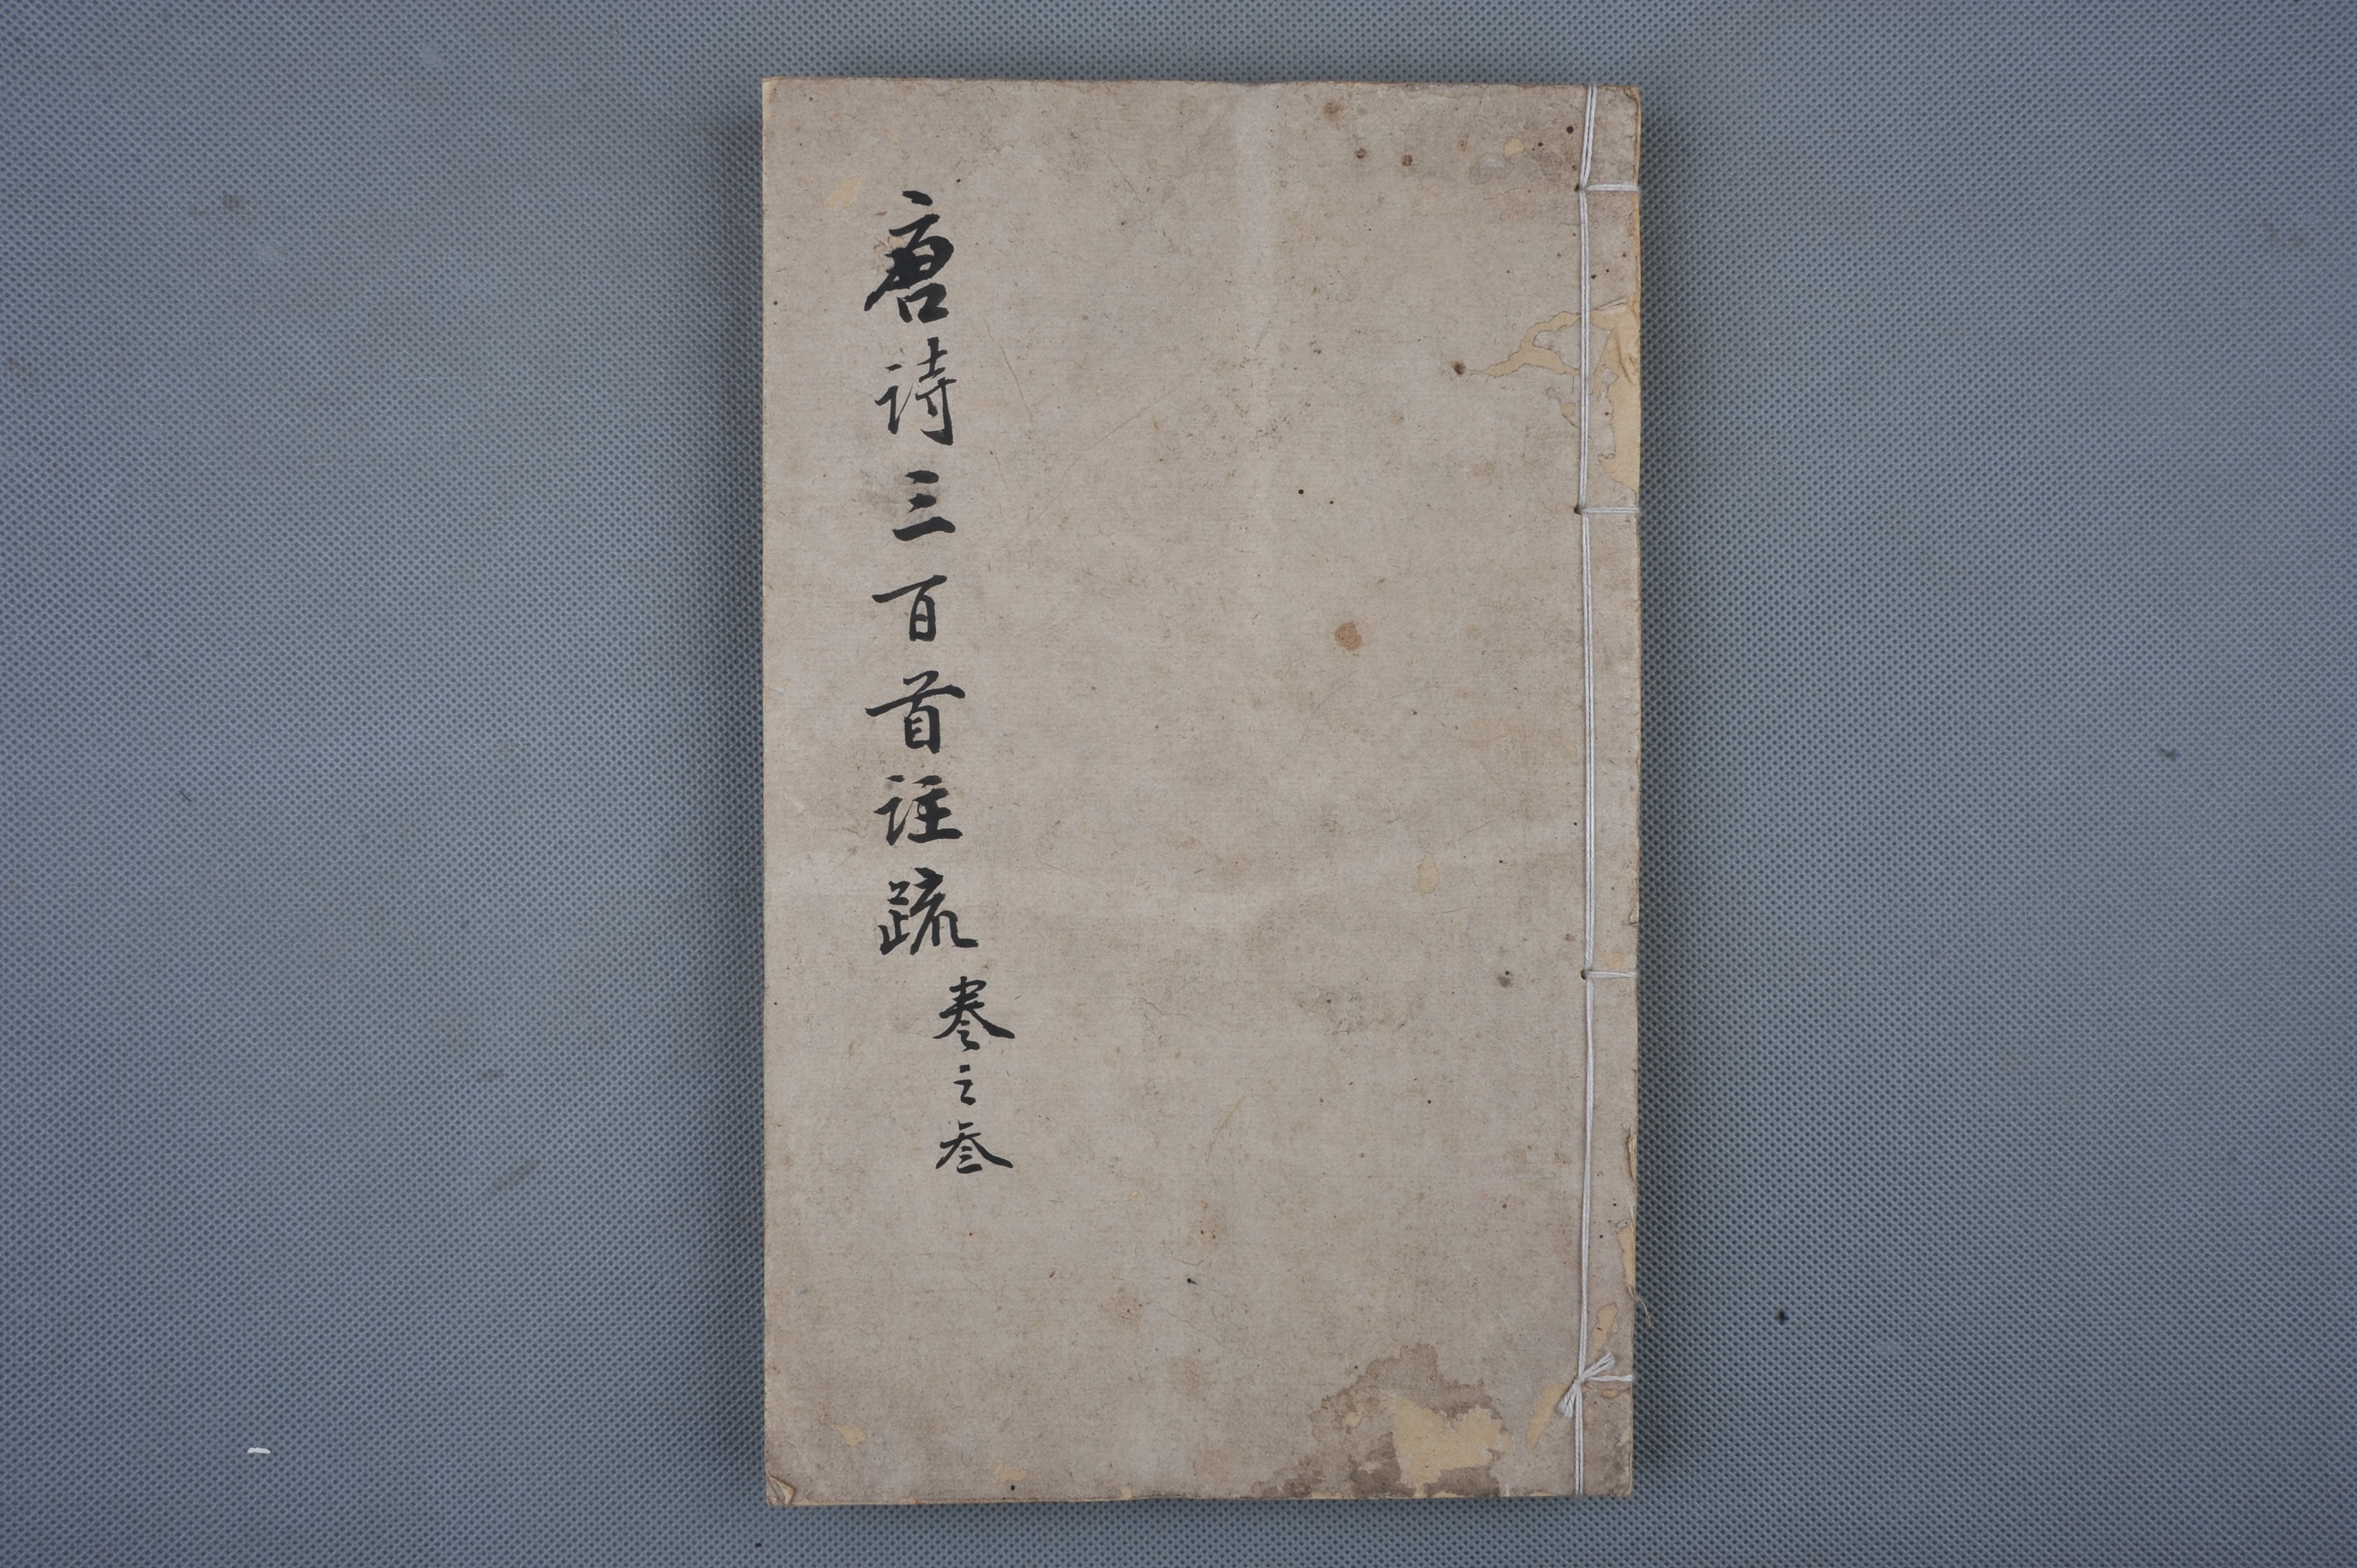 唐诗三百首註疏
卷之叁